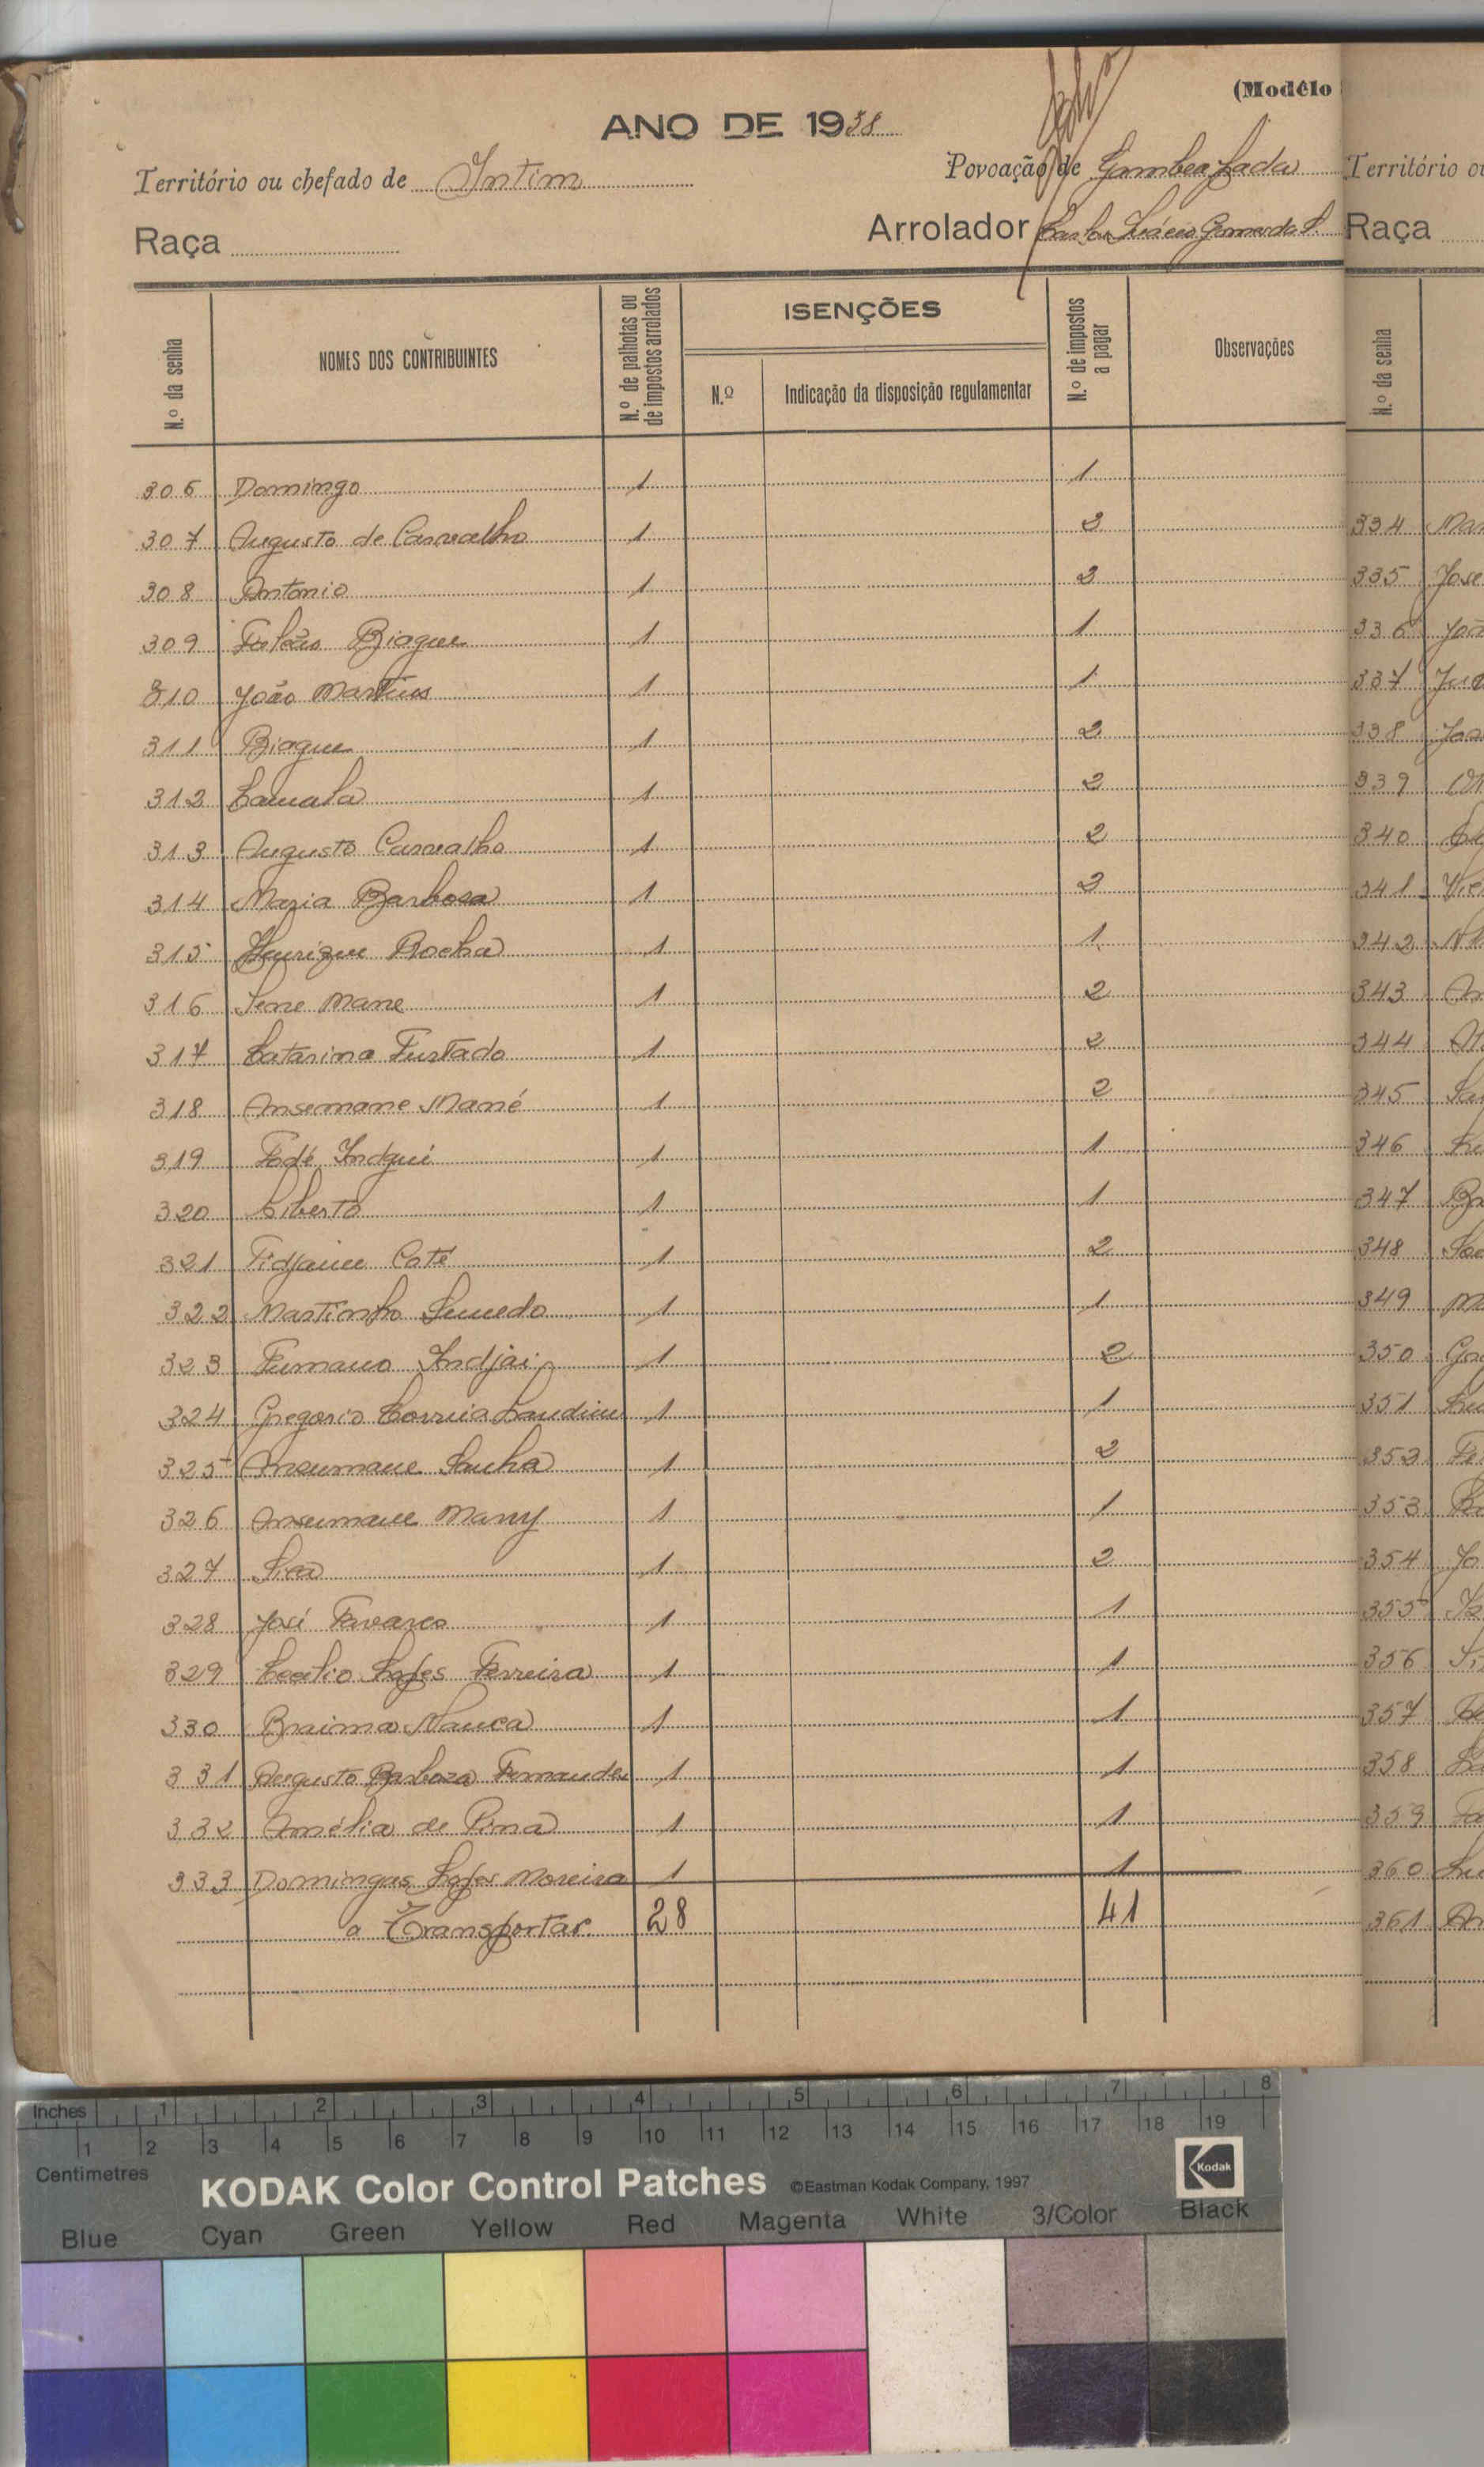 (Modêlo
ANO DE 1938
Território ou chefado de Intim
Povoação de Gambea fada
Raça
Arrolador Gomes
N.º da senha
NOMES DOS CONTRIBUINTES
N.º de palhotas ou de impostos arrolados
ISENÇÕES
N.º
Indicação da disposição regulamentar
N.º de impostos a pagar
Observações
306 Domingo 1 1
307 Augusto de Carvalho 1 2
308 Antonio 1 2
309 Biague 1 1
310 João Martins 1 1
311 Biague 1 2
312 Camala 1 2
313 Augusto Carvalho 1 2
314 Maria Barbosa 1 2
315 Henrique Rocha 1 1
316 Sene Mane 1 2
317 Catarina Furtado 1 2
318 Ansemane Mané 1 2
319 Fodé Indqui 1 1
320 Liberto 1 1
321 Fidjame Coté 1 2
322 Martinho Semedo 1 1
323 Indjai 1 2
324 Gregorio Correia Landim 1 1
325 Ansumane Sanha 1 2
326 Ansumane Many 1 1
327 Sica 1 2
328 José Tavares 1 1
329 Cecilio Lopes Ferreira 1 1
330 Braima Nanca 1 1
331 Augusto Barboza Fernandes 1 1
332 Amélia de Pina 1 1
333 Domingas Lopes Moreira 1 1
a Transportar 28 41
Território ou
Raça
N.º da senha
334 Mar
335 Jose
336 Joã
337
338
339
340
341
342
343
344
345
346
347
348
349
350
351
352
353
354 Jo
355
356
357
358
359
360
361
Inches 1 2 3 4 5 6 7 8
1 2 3 4 5 6 7 8 9 10 11 12 13 14 15 16 17 18 19
Centimetres
KODAK Color Control Patches ©Eastman Kodak Company, 1997 Kodak
Blue Cyan Green Yellow Red Magenta White 3/Color Black